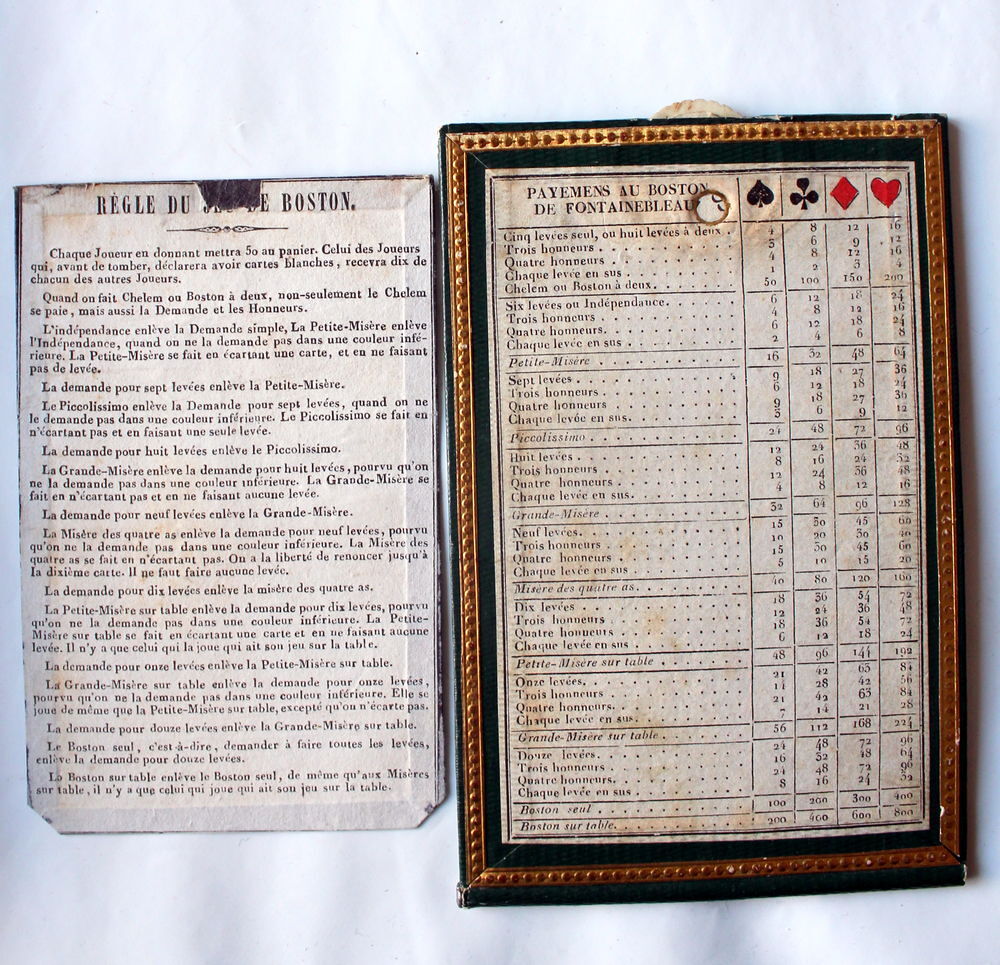 RÈGLE DU JEU DE BOSTON.
Chaque Joueur en donnant mettra 50 au panier. Celui des Joueurs
qui, avant de tomber, déclarera avoir cartes blanches, recevra dix de
chacun des autres Joueurs.
Quand on fait Chelem ou Boston à deux, non-seulement le Chelem
se paie, mais aussi la Demande et les Honneurs.
L'indépendance enlève la Demande simple, La Petite-Misère enlève
l'Indépendance, quand on ne la demande pas dans une couleur infé-
rieure. La Petite-Misère se fait en écartant une carte, et en ne faisant
pas de levée.
La demande pour sept levées enlève la Petite-Misère.
Le Piccolissimo enlève la Demande pour sept levées, quand on ne
le demande pas dans une couleur inférieure. Le Piccolissimo se fait en
n'écartant pas et en faisant une seule levée.
La demande pour huit levées enlève le Piccolissimo.
La Grande-Misère enlève la demande pour huit levées, pourvu qu'on
ne la demande pas dans une couleur inférieure. La Grande-Misère se
fait en n'écartant pas et en ne faisant aucune levée.
La demande pour neuf levées enlève la Grande-Misère.
La Misère des quatre as enlève la demande pour neuf levées, pourvu
qu'on ne la demande pas dans une couleur inférieure. La Misère des
quatre as se fait en n'écartant pas. On a la liberté de renoncer jusqu'à
la dixième carte. Il ne faut faire aucune levée.
La demande pour dix levées enlève la misère des quatre as.
La Petite-Misère sur table enlève la demande pour dix levées, pourvu
qu'on ne la demande pas dans une couleur inférieure. La Petite-
Misère sur table se fait en écartant une carte et en ne faisant aucune
levée. Il n'y a que celui qui la joue qui ait son jeu sur la table.
La demande pour onze levées enlève la Petite-Misère sur table.
La Grande-Misère sur table enlève la demande pour onze levées,
pourvu qu'on ne la demande pas dans une couleur inférieure. Elle se
joue de même que la Petite-Misère sur table, excepté qu'on n'écarte pas.
La demande pour douze levées enlève la Grande-Misère sur table.
Le Boston seul, c'est-à-dire, demander à faire toutes les levées,
enlève la demande pour douze levées.
Le Boston sur table enlève le Boston seul, de même qu'aux Misères
sur table, il n'y a que celui qui joue qui ait son jeu sur la table.
PAYEMENS AU BOSTON
DE FONTAINEBLEAU
Cinq levées seul, ou huit levées à deux. 4 8 12 16
Trois honneurs 3 6 9 12
Quatre honneurs 4 8 12 16
Chaque levée en sus 1 2 3 4
Chelem ou Boston à deux. 50 100 150 200
Six levées ou Indépendance. 6 12 18 24
Trois honneurs 4 8 12 16
Quatre honneurs. 6 12 18 24
Chaque levée en sus. 2 4 6 8
Petite-Misère 16 32 48 64
Sept levées 9 18 27 36
Trois honneurs 6 12 18 24
Quatre honneurs 9 18 27 36
Chaque levée en sus. 3 6 9 12
Piccolissimo 24 48 72 96
Huit levées 12 24 36 48
Trois honneurs 8 16 24 32
Quatre honneurs 12 24 36 48
Chaque levée en sus. 4 8 12 16
Grande-Misère 32 64 96 128
Neuf levées 15 30 45 60
Trois honneurs 10 20 30 40
Quatre honneurs 15 30 45 60
Chaque levée en sus 5 10 15 20
Misère des quatre as. 40 80 120 160
Dix levées 18 36 54 72
Trois honneurs 12 24 36 48
Quatre honneurs 18 36 54 72
Chaque levée en sus. 6 12 18 24
Petite-Misère sur table 48 96 144 192
Onze levées. 21 42 63 84
Trois honneurs 14 28 42 56
Quatre honneurs. 21 42 63 84
Chaque levée en sus. 7 14 21 28
Grande-Misère sur table 56 112 168 224
Douze levées. 24 48 72 96
Trois honneurs 16 32 48 64
Quatre honneurs. 24 48 72 96
Chaque levée en sus 8 16 24 32
Boston seul 100 200 300 400
Boston sur table. 200 400 600 800